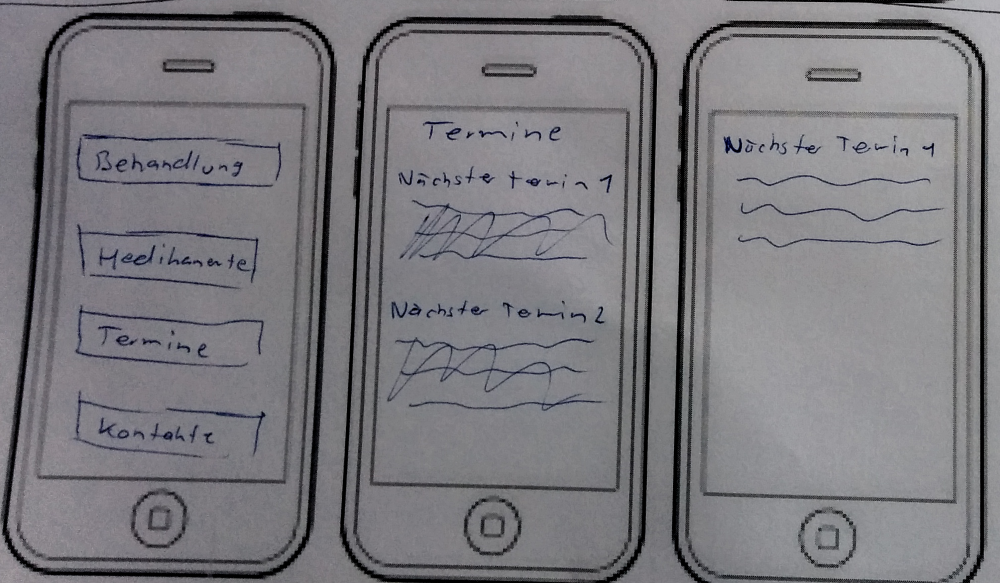 Behandlung
Medikamente
Termine
Kontakte
Termine
Nächster termin 1
Nächster Termin 2
Nächster Termin 1